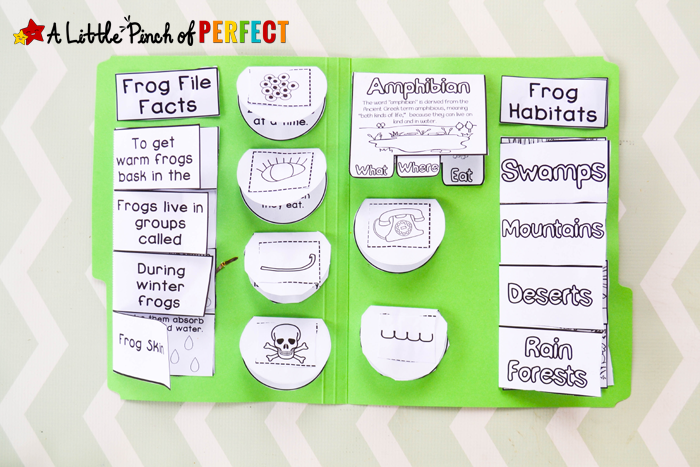 A Little Pinch of PERFECT
Frog File
Facts
To get
warm frogs
bask in the
Frogs live in
groups
called
During
winter
frogs
them absorb
water.
Frog Skin
at a time.
they eat.
Amphibian
The word "amphibian" is derived from the
Ancient Greek term amphibious, meaning
"both kinds of life," because they can live on
land and in water
What
Where
Eat
Frog
Habitats
Swamps
Mountains
Deserts
Rain
Forests